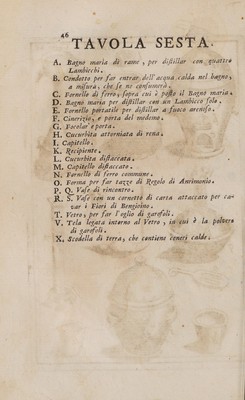 46
TAVOLA SESTA.
A. Bagno maria di rame, per distillar con quattro
Lambicchi.
B. Condotto per far entrar dell'acqua calda nel bagno,
a misura, che se ne consumerà.
C. Fornello di ferro, sopra cui è posto il Bagno maria.
D. Bagno maria per distillar con un Lambicco solo.
E. Fornello portatile per distillar a fuoco arenoso.
F. Cinerizio, e porta del medemo.
G. Focolar e porta.
H. Cucurbita attorniata di rena.
I. Capitello.
K. Recipiente.
L. Cucurbita distaccata.
M. Capitello distaccato.
N. Fornello di ferro commune.
O. Forma per far tazze di Regolo di Antimonio.
P. Q. Vase di rincontro.
R. S. Vasi con un cornetto di carta attaccato per ca-
var i Fiori di Bengioino.
T. Vetro, per far l'oglio di garofoli.
V. Tela legata intorno al Vetro, in cui è la polvere
di garofoli.
X. Scodella di terra, che contiene ceneri calde.